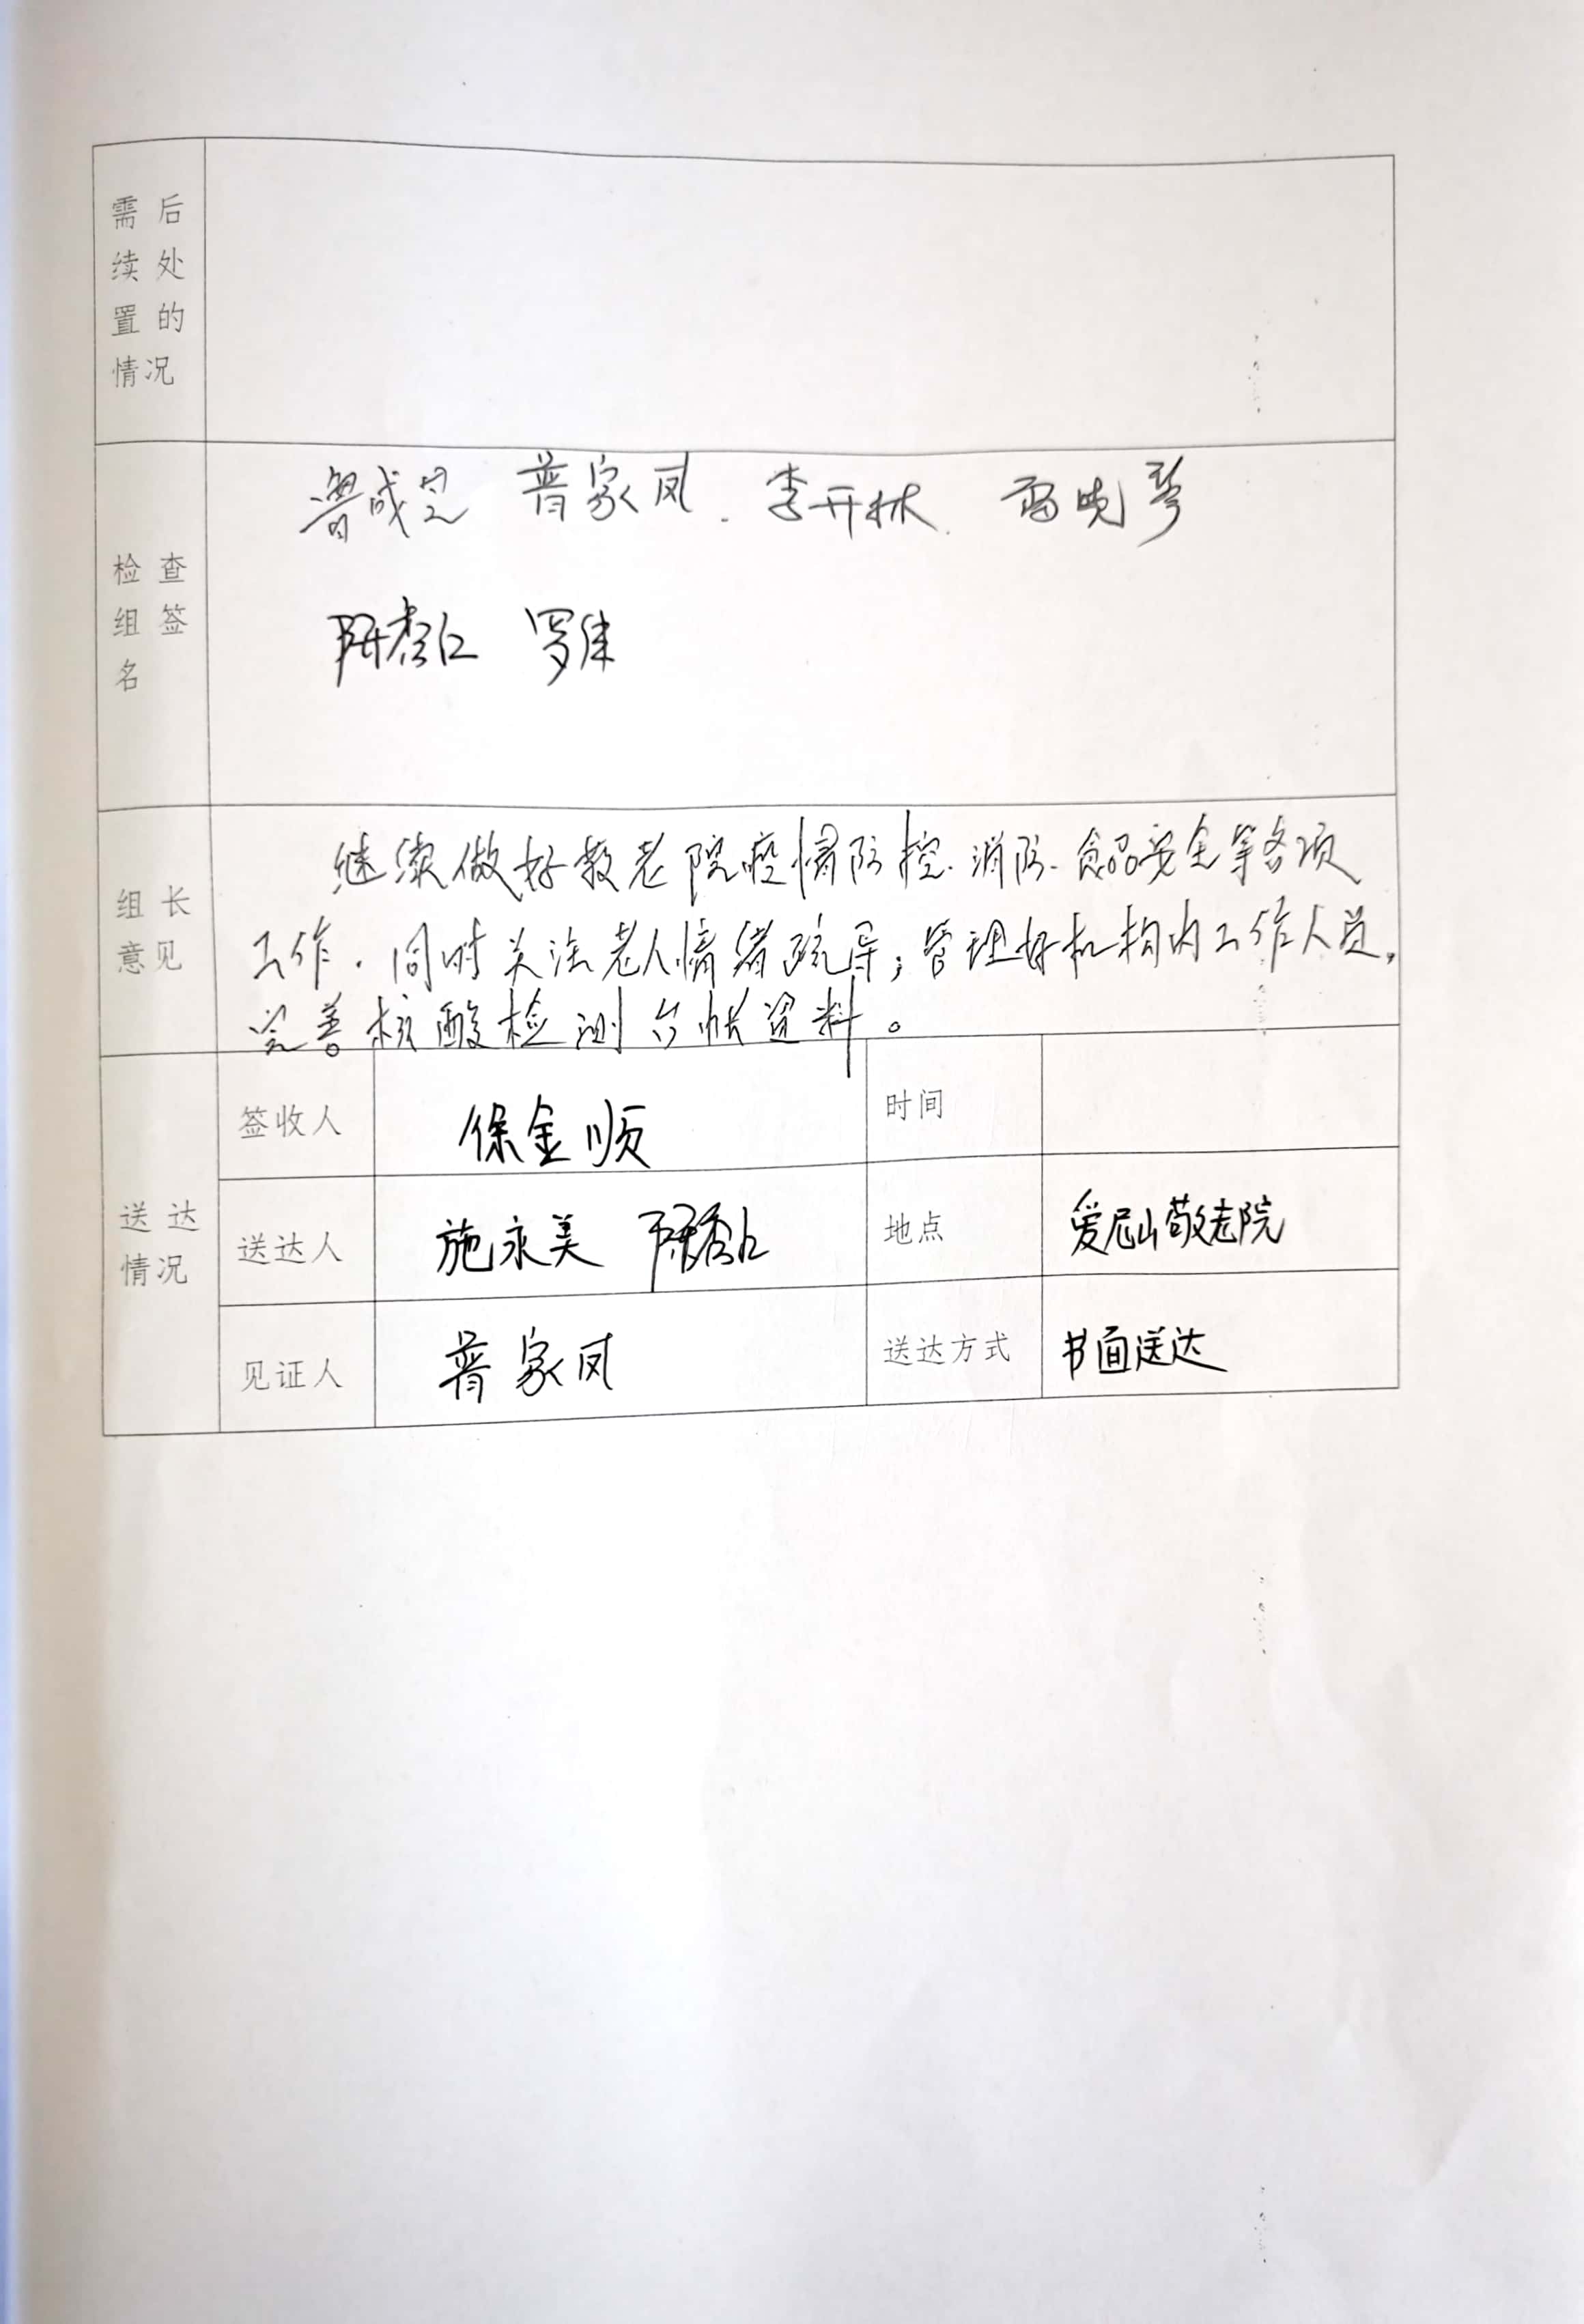 需后
续处
置的
情况
检查
组签
名
鲁成芝 普家凤. 李开林. 雷晓琴
陈秀仁 罗佳
组长
意见
继续做好敬老院疫情防控.消防.食品安全等各项
工作.同时关注老人情绪疏导;管理好机构内工作人员,
完善核酸检测台帐资料。
送达
情况
签收人 保金顺 时间
送达人 施永美 陈秀仁 地点 爱尼山敬老院
见证人 普家凤 送达方式 书面送达